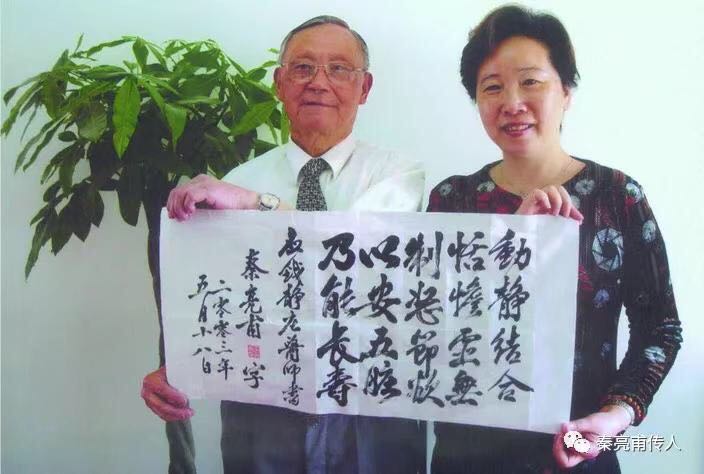 動靜結合
恬憺虛無
制怒節欲
以安五脏
乃能長壽
錢静 醫師書
秦亮甫 字
二零零三年
五月十八日
秦亮甫传人